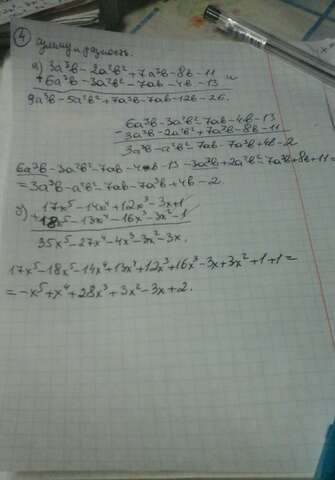 ④ сумму и разность.
а) 3a³b - 2a²b² + 7a³b - 8b - 11
+ 6a³b - 3a²b² - 7ab - 4b - 13 и
9a³b - 5a²b² + 7a³b - 7ab - 12b - 26.
6a³b - 3a²b² - 7ab - 4b - 13
- 3a³b - 2a²b² + 7a³b - 8b - 11
3a³b - a²b² - 7ab - 7a³b + 4b - 2
6a³b - 3a²b² - 7ab - 4b - 13 - 3a³b + 2a²b² - 7a³b + 8b + 11 =
= 3a³b - a²b² - 7ab - 7a³b + 4b - 2
б) 17x⁵ - 14x⁴ + 12x³ - 3x + 1
+ 18x⁵ - 13x⁴ - 16x³ - 3x² - 1
35x⁵ - 27x⁴ - 4x³ - 3x² - 3x.
17x⁵ - 18x⁵ - 14x⁴ + 13x⁴ + 12x³ + 16x³ - 3x + 3x² + 1 + 1 =
= -x⁵ + x⁴ + 28x³ + 3x² - 3x + 2.